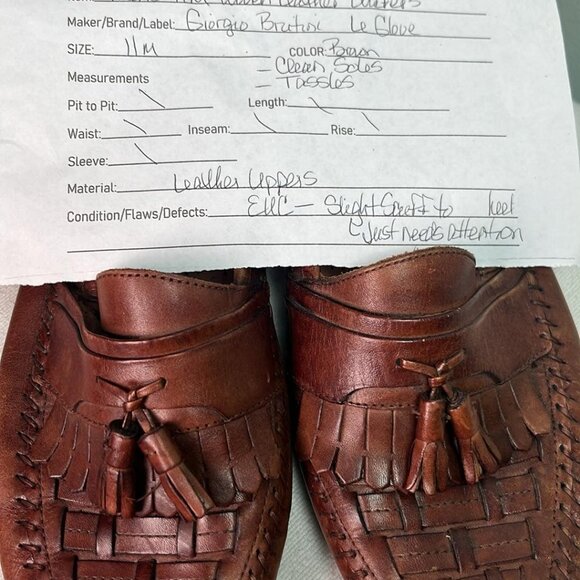 Leather
Maker/Brand/Label: Giorgio Brutini Le Glove
SIZE: 11M COLOR: Brown
- Clean Soles
Measurements - Tassles
Pit to Pit: Length:
Waist: Inseam: Rise:
Sleeve:
Material: Leather Uppers
Condition/Flaws/Defects: EUC - Slight Scuff to heel
Just needs Attention